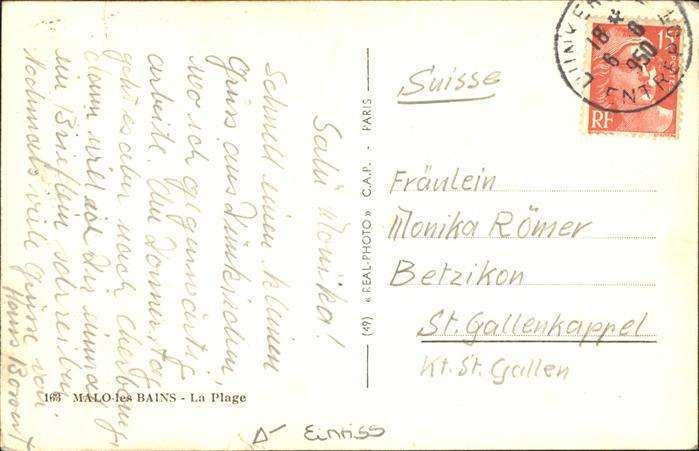 Salü Monika!
Schnell einen kleinen
Gruss aus Dünkirchen,
wo ich gegenwärtig
arbeite. Am Donnerstag
geht es aber nach Cherbourg,
dann will ich Dir einmal
ein Brieflein schreiben.
Nochmals viele Grüsse von
Hans
163 MALO-les BAINS - La Plage
(49) « REAL-PHOTO » C.A.P. - PARIS
18 *
6 - 8
950
ENTREPOT
15F
RF
Suisse
Fräulein
Monika Römer
Betzikon
St. Gallenkappel
Kt. St. Gallen
Einriss